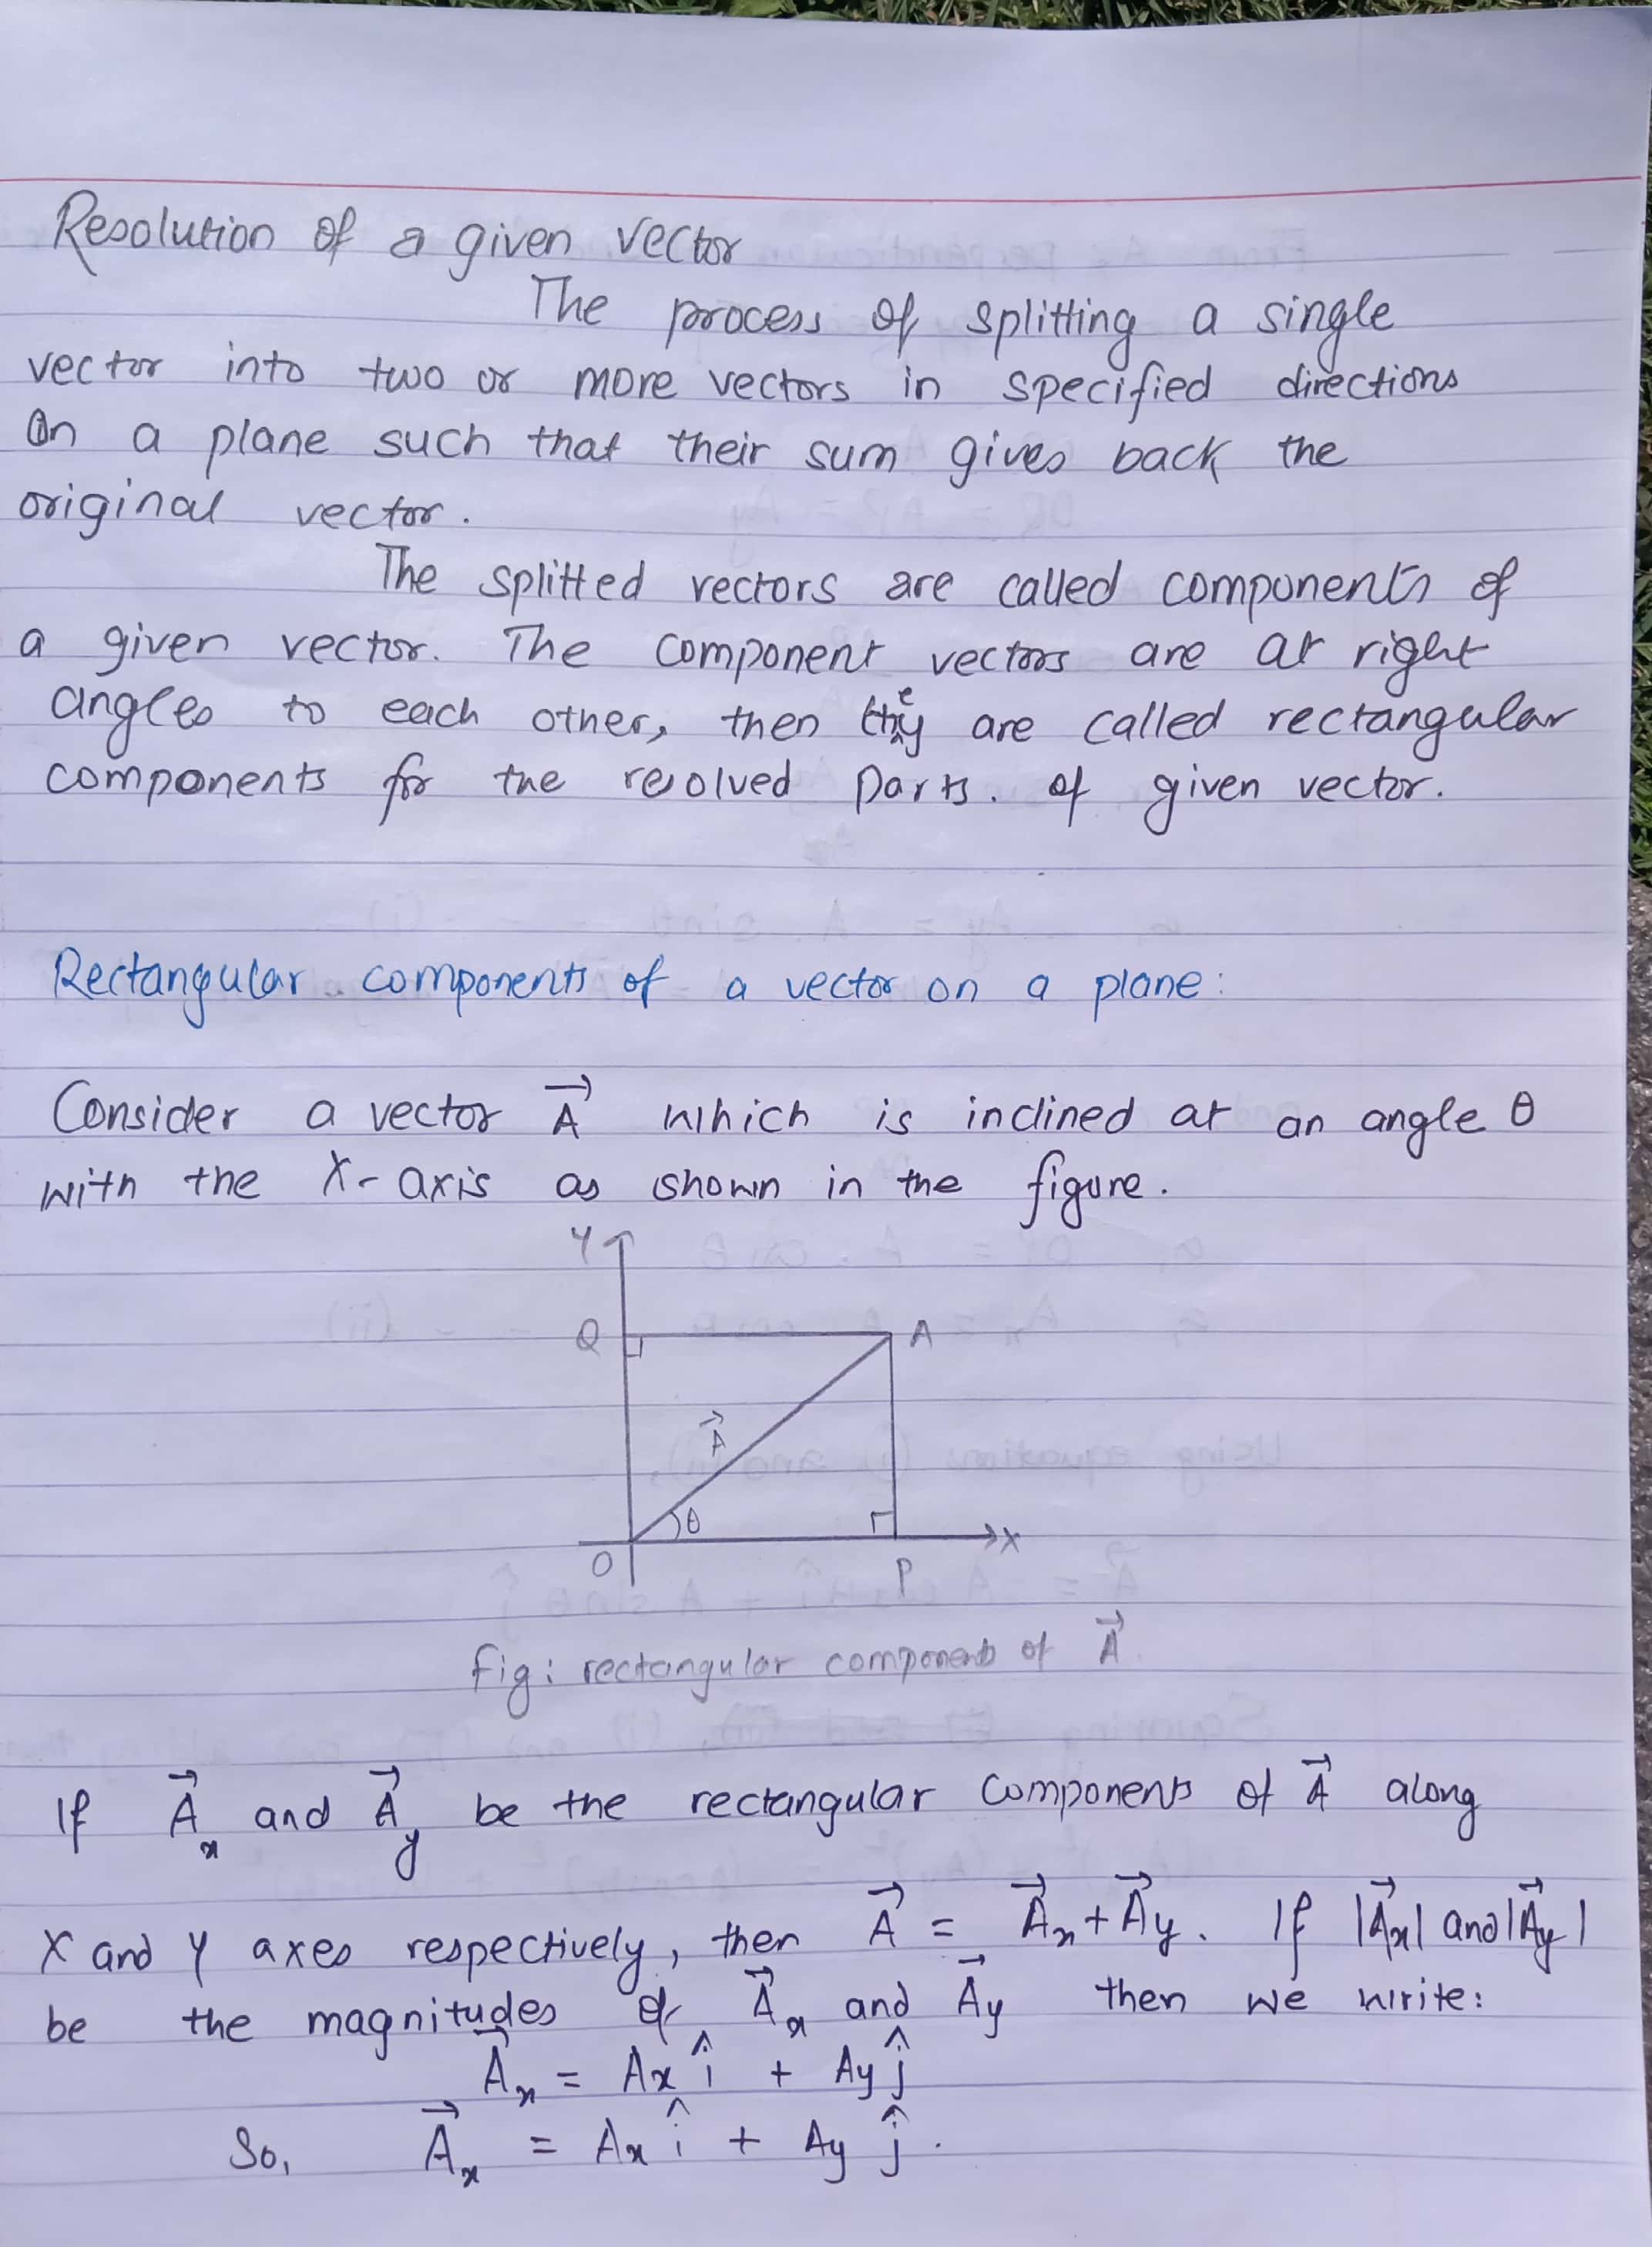 Resolution of a given vector
The process of splitting a single
vector into two or more vectors in specified directions
On a plane such that their sum gives back the
original vector.
The splitted vectors are called components of
a given vector. The component vectors are at right
angles to each other, then they are called rectangular
components for the resolved parts. of given vector.
Rectangular components of a vector on a plane:
Consider a vector A⃗ which is inclined at an angle θ
with the X-axis as shown in the figure.
Y
Q A
A⃗
θ
O P X
fig: rectangular components of A⃗.
If A⃗x and A⃗y be the rectangular components of A⃗ along
X and Y axes respectively, then A⃗ = A⃗x + A⃗y. If |A⃗x| and |A⃗y|
be the magnitudes of A⃗x and A⃗y then we write:
A⃗x = Ax î + Ay ĵ
So, A⃗x = Ax î + Ay ĵ.